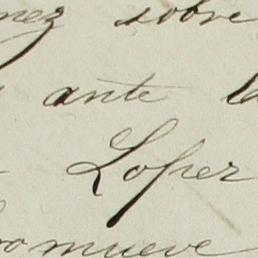 nez sobre
ante la
Lopez
promueve